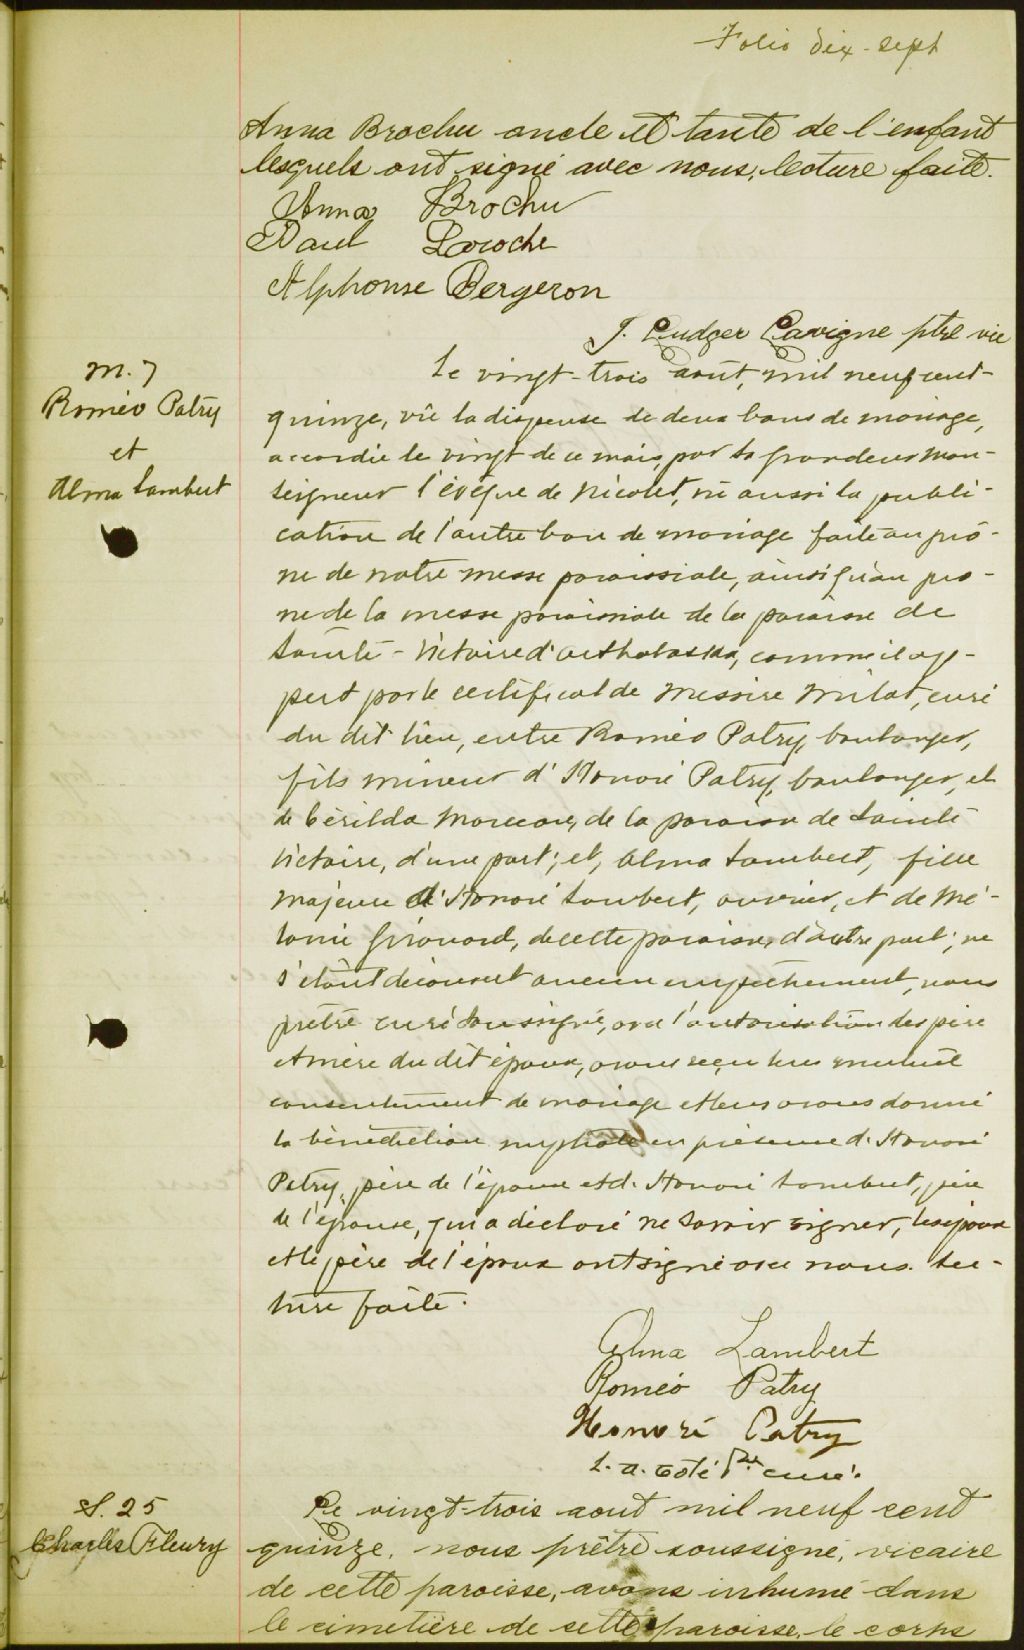 Folio dix-sept
Anna Brochu oncle et tante de l'enfant
lesquels ont signé avec nous, lecture faite.
Anna Brochu
Paul Laroche
Alphonse Bergeron
J. Ludger Lavigne ptre vic
m. 7
Roméo Patry
et
Alma Lambert
Le vingt-trois août, mil neuf cent-
quinze, vû la dispense de deux bans de mariage,
accordée le vingt de ce mois, par sa grandeur mon-
seigneur l'évêque de Nicolet, vû aussi la publi-
cation de l'autre ban de mariage faite au prô-
ne de notre messe paroissiale, ainsi qu'au prô-
ne de la messe paroissiale de la paroisse de
Sainte-Victoire d'Arthabaska, comme il ap-
pert par le certificat de Messire Milot, curé
du dit lieu, entre Roméo Patry, boulanger,
fils mineur d'Honoré Patry, boulanger, et
de Cérilda Moreau, de la paroisse de Sainte
Victoire, d'une part; et, Alma Lambert, fille
majeure d'Honoré Lambert, ouvrier, et de Mé-
lanie Girouard, de cette paroisse, d'autre part; ne
s'étant découvert aucun empêchement, nous
prêtre curé soussigné, avec l'autorisation des père
et mère du dit époux, avons reçu leur mutuel
consentement de mariage et leur avons donné
la bénédiction nuptiale en présence d'Honoré
Patry, père de l'époux et d'Honoré Lambert, père
de l'épouse, qui a déclaré ne savoir signer, les époux
et le père de l'époux ont signé avec nous. Lec-
ture faite.
Alma Lambert
Roméo Patry
Honoré Patry
L. A. Côté Ptre curé.
S. 25
Charles Fleury
Le vingt-trois aout mil neuf cent
quinze, nous prêtre soussigné, vicaire
de cette paroisse, avons inhumé dans
le cimetière de cette paroisse, le corps